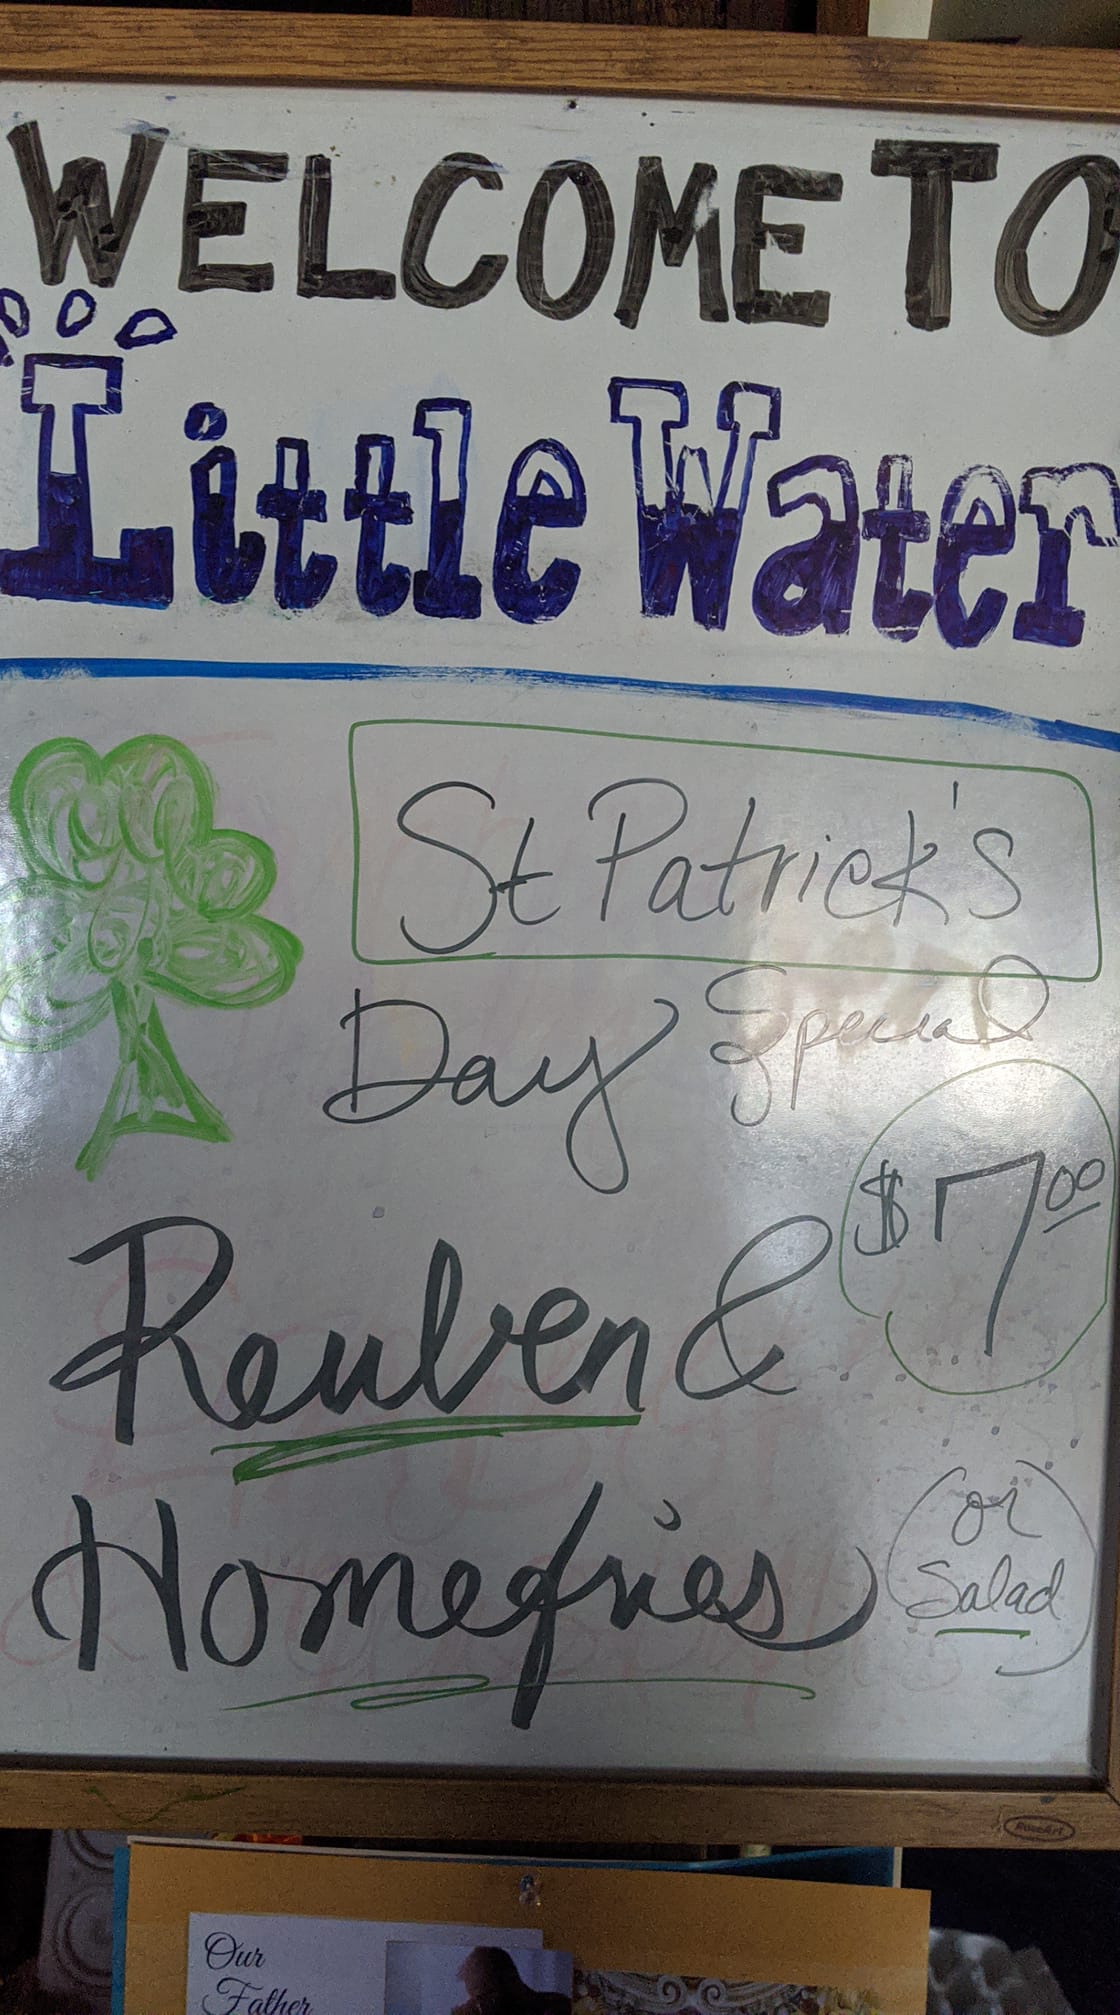 WELCOME TO
Little Water
St Patrick's
Day Special
$7.00
Reuben &
Homefries
(or
Salad)
RoseArt
Our
Father